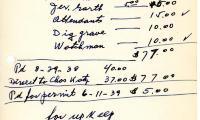 Jev. Earth 5.00
Attendants — 15.00 ✓
Dig grave — 10.00
Watchman — 10.00 ✓
$77.00
Pd 8-29-38 40.00
Direct to Chas Katz 37.00 $77.00
Pd for permit 6-11-39 $5.00
for upkeep